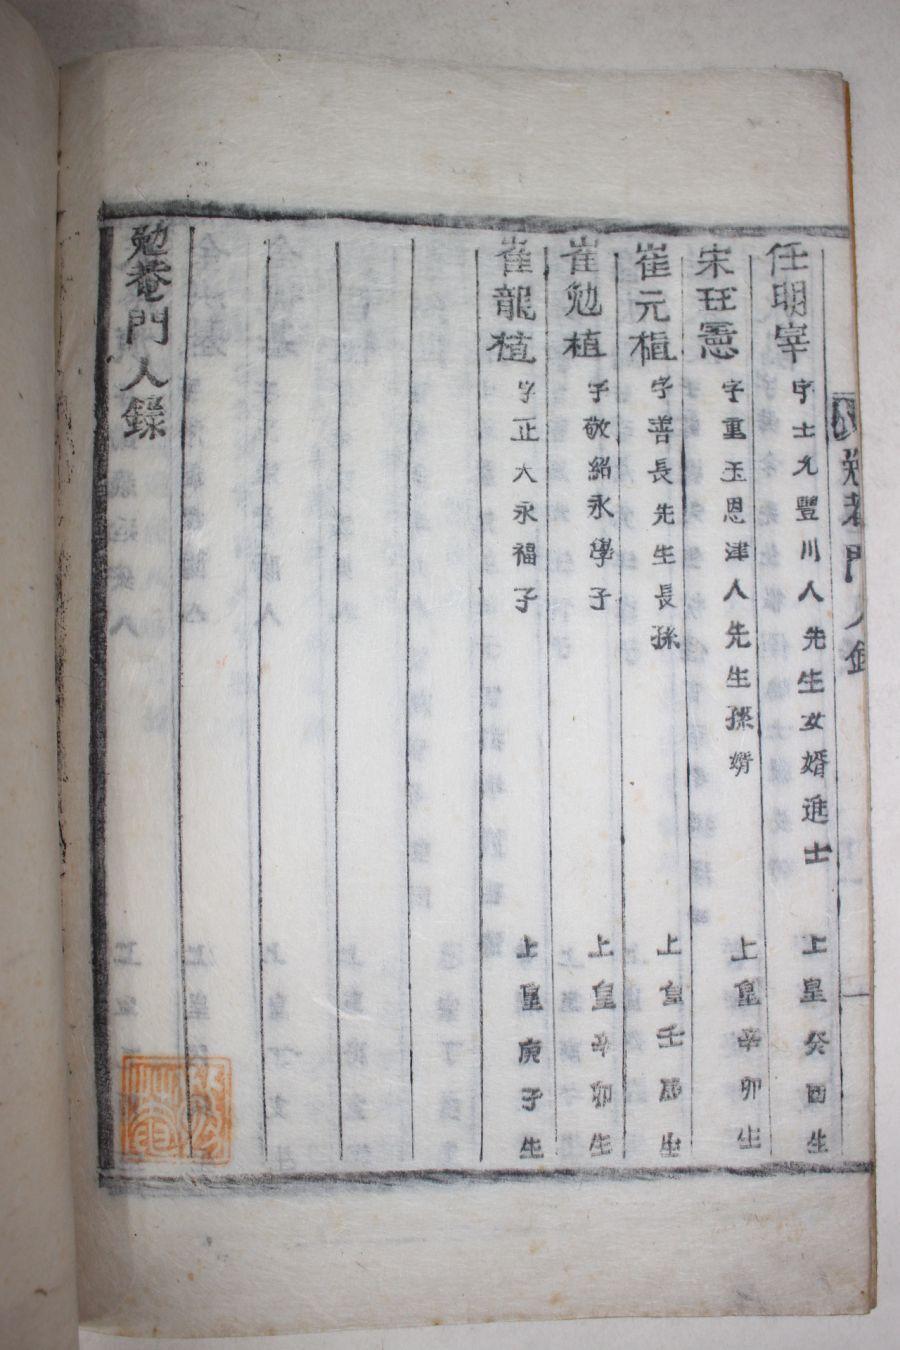 勉菴門人錄
任明宰 字士允豐川人先生女婿進士 上皇癸酉生
宋珏憲 字重玉恩津人先生孫婿 上皇辛卯生
崔元植 字善長先生長孫 上皇壬辰生
崔勉植 字敬紹永學子 上皇辛卯生
崔龍植 字正大永福子 上皇庚子生
勉菴門人錄